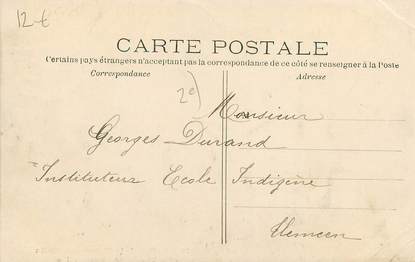 12-€
CARTE POSTALE
Certains pays étrangers n'acceptant pas la correspondance de ce côté se renseigner à la Poste
Correspondance Adresse
2e)
Monsieur
Georges Durand
Instituteur Ecole Indigène
Tlemcen